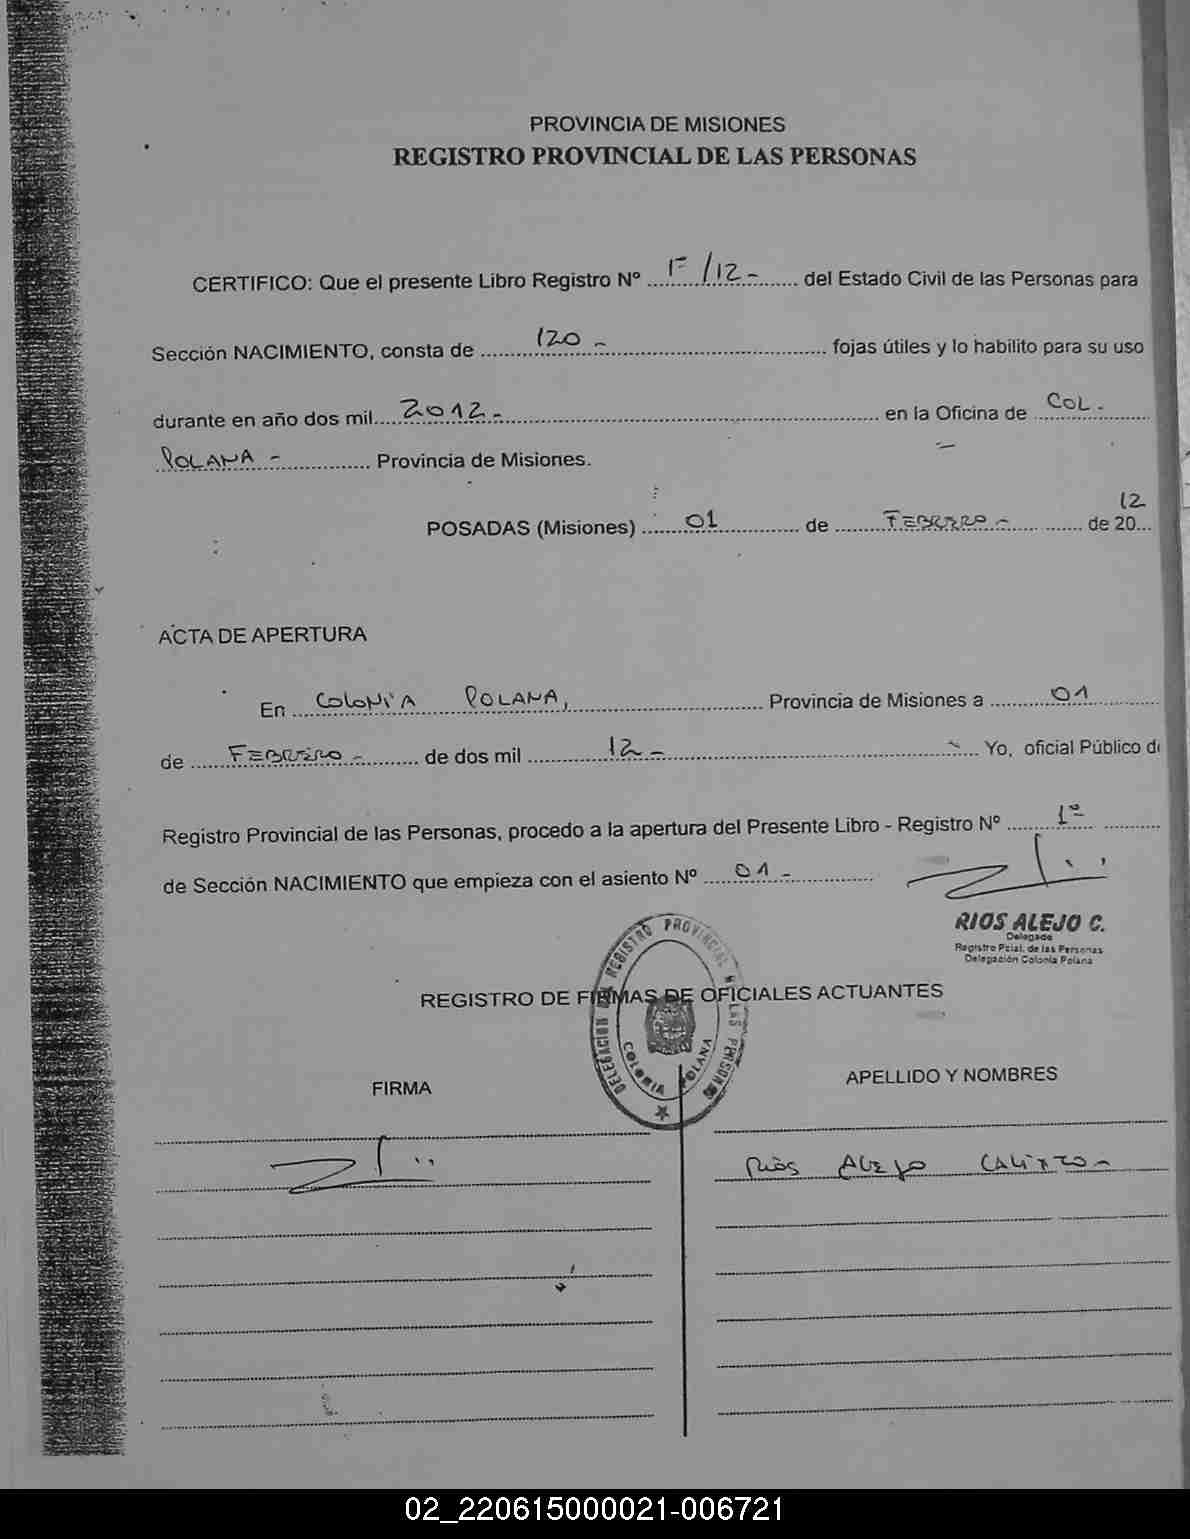 PROVINCIA DE MISIONES
REGISTRO PROVINCIAL DE LAS PERSONAS
CERTIFICO: Que el presente Libro Registro Nº 1º/12- del Estado Civil de las Personas para
Sección NACIMIENTO, consta de 120- fojas útiles y lo habilito para su uso
durante en año dos mil 2012- en la Oficina de COL.
POLANA- Provincia de Misiones.
12
POSADAS (Misiones) 01 de FEBRERO- de 20...
ACTA DE APERTURA
En COLONIA POLANA, Provincia de Misiones a 01
de FEBRERO- de dos mil 12- Yo, oficial Público de
Registro Provincial de las Personas, procedo a la apertura del Presente Libro - Registro Nº 1º
de Sección NACIMIENTO que empieza con el asiento Nº 01-
RIOS ALEJO C.
Delegado
Registro Pcial. de las Personas
Delegación Colonia Polana
DELEGACION DEL REGISTRO PROVINCIAL DE LAS PERSONAS
COLONIA POLANA
REGISTRO DE FIRMAS DE OFICIALES ACTUANTES
FIRMA APELLIDO Y NOMBRES
RIOS ALEJO CALIXTO-
02_220615000021-006721